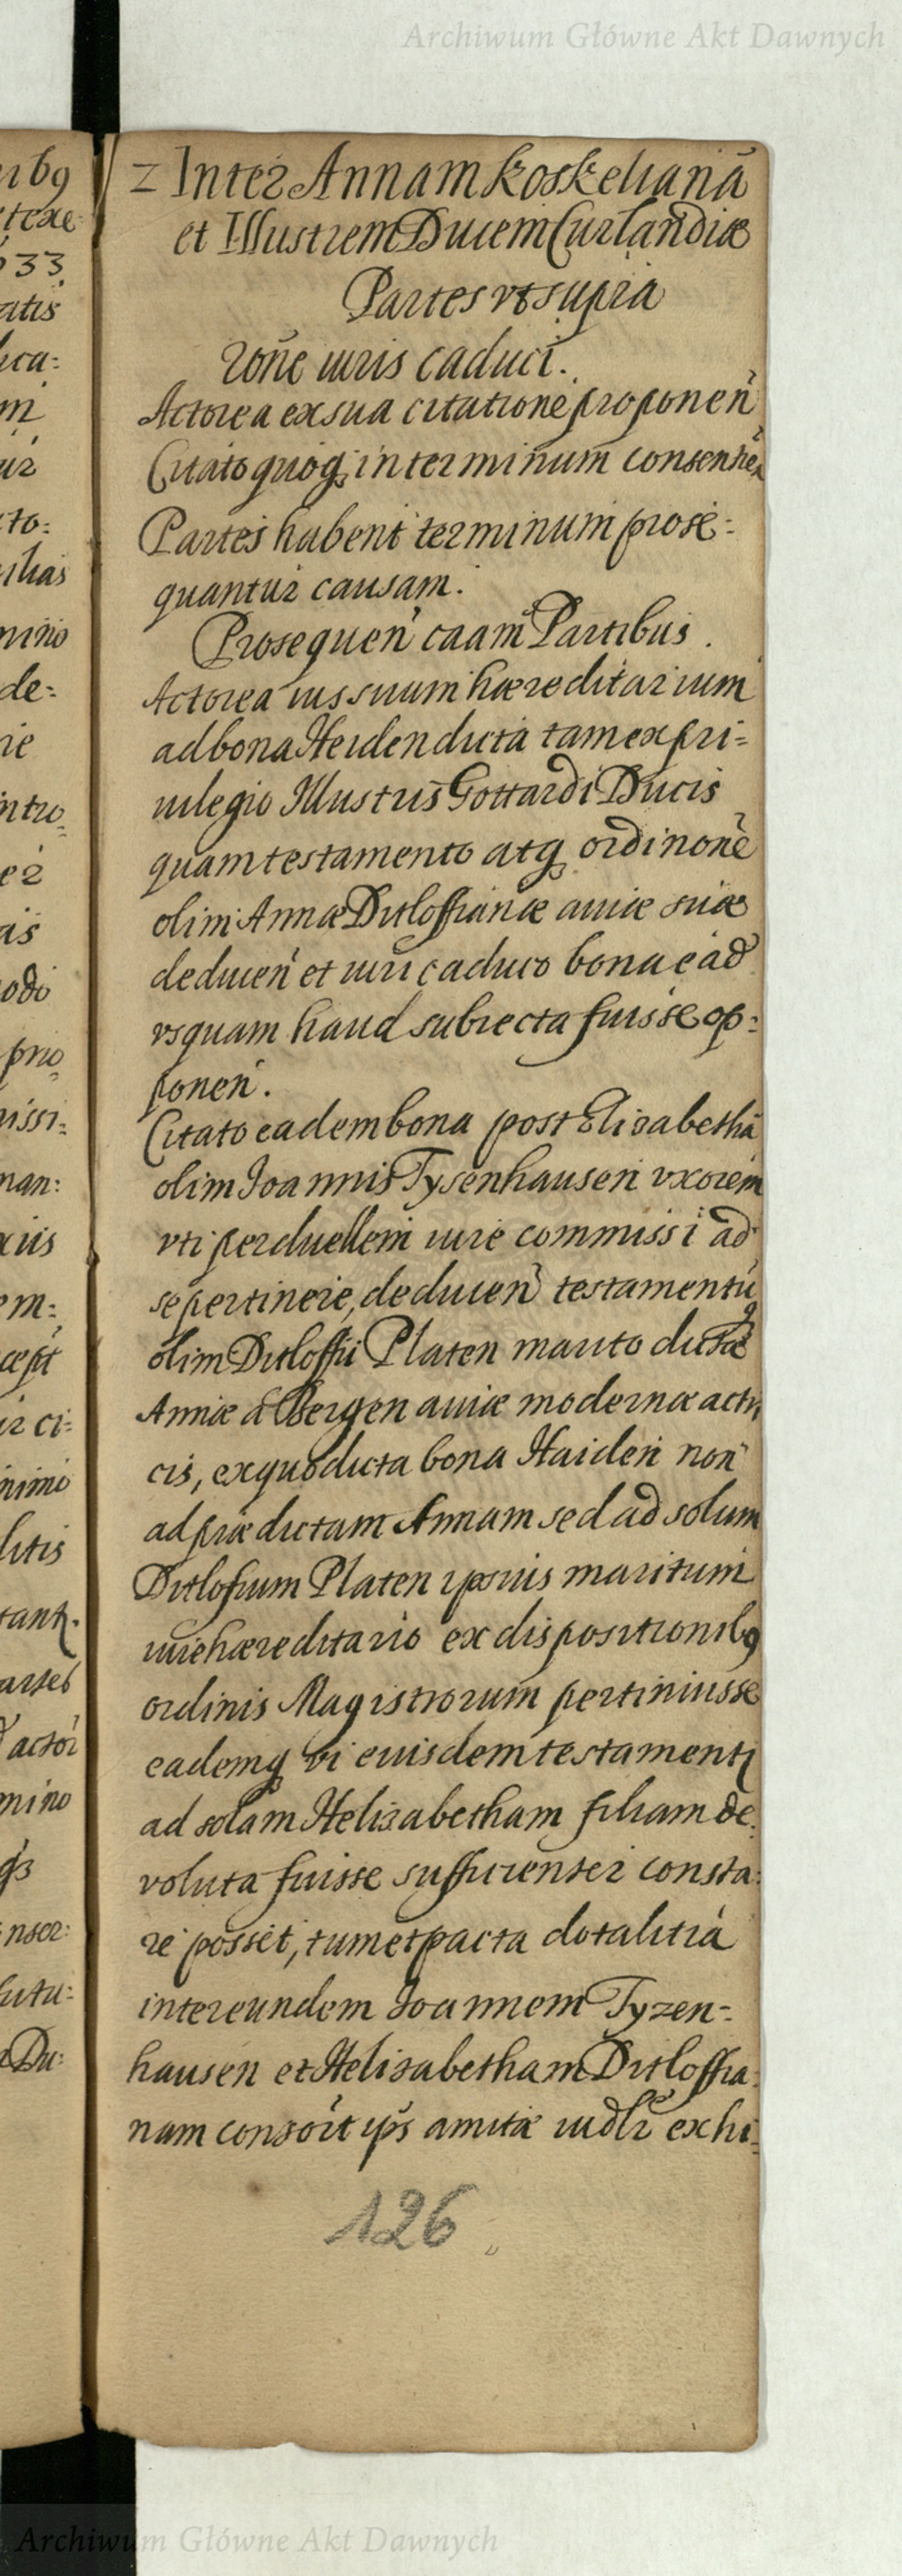 Archiwum Główne Akt Dawnych
Inter Annam Koskelianā
et Illustrem Ducem Curlandiæ
Partes vt supra
rōne iuris caduci.
Actorea ex sua citatione proponeñ
Citato quoq in terminum consentieñ
Partes habent terminum prose:
quantur causam.
Prosequeñ caam̃ Partibus.
Actorea ius suum hæreditarium
ad bona Heiden dicta tam ex pri=
uilegio Illustris Gottardi Ducis
quam testamento atq ordinõne
olim Annæ Ditloffianæ auiæ suæ
deduceñ et iuri caduco bona ead
vsquam haud subiecta fuisse op:
poneñ.
Citato eadem bona post Elisabethā
olim Joannis Tysenhausen vxorem
vti perduellem iure commissi ad
se pertinere, deduceñ testamentū
olim Ditloffii Platen marito dictæ
Annæ à Bergen auiæ modernæ actri
cis, ex quo dicta bona Haiden non
ad prædictam Annam sed ad solum
Ditlofium Platen ipsius maritum
iure hæreditario ex dispositionib9
ordinis Magistrorum pertinuisse
eademq vi eiusdem testamenti
ad solam Helisabetham filiam de:
voluta fuisse sufficienter consta:
re posset, tum et pacta dotalitia
inter eundem Joannem Tyzen=
hausen et Helisabetham Ditloffia:
nam consort ips amitæ iudlr exhi:
126
Archiwum Główne Akt Dawnych